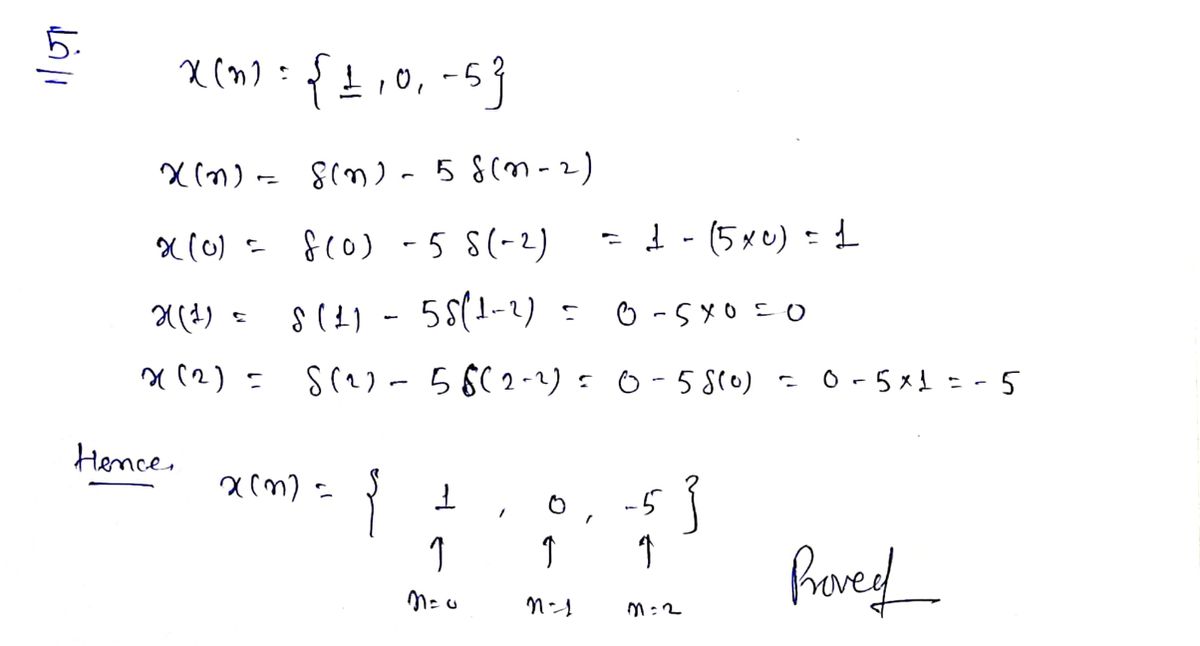 5.
x(n) = { 1, 0, -5 }
x(n) = δ(n) - 5 δ(n-2)
x(0) = δ(0) - 5 δ(-2) = 1 - (5×0) = 1
x(1) = δ(1) - 5δ(1-2) = 0 - 5×0 = 0
x(2) = δ(2) - 5 δ(2-2) = 0 - 5 δ(0) = 0 - 5×1 = - 5
Hence,
x(n) = { 1 , 0, -5 }
↑ ↑ ↑
n=0 n=1 n=2
Proved